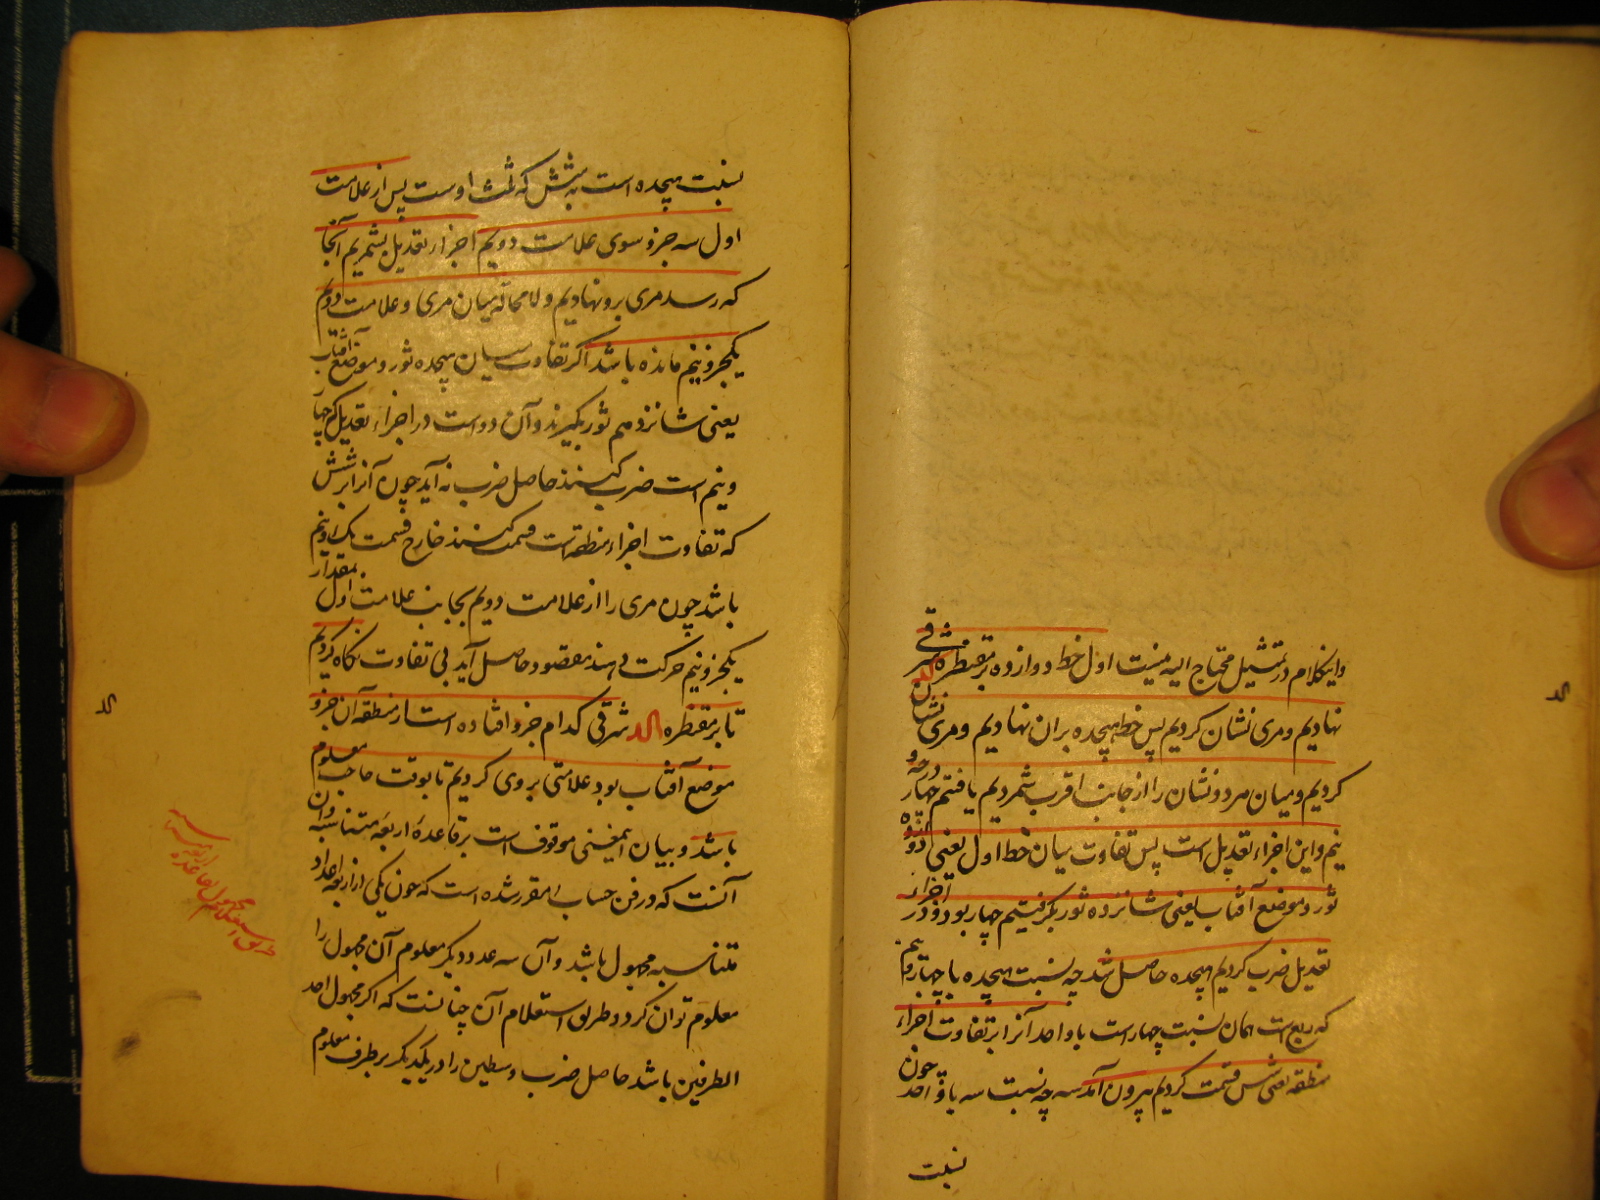 واینکلام در تمثیل محتاج الیه نیست اول خط دوازده بر مقنطره الد شرقی
نهادیم و مری نشان کردیم پس خط هیجده بران نهادیم و مری نشان
کردیم و میان هر دو نشان را از جانب اقرب شمردیم یافتیم چهار درجه و
نیم و این اجزاء تعدیل است پس تفاوت میان خط اول یعنی دوازده
ثور و موضع آفتاب یعنی شانزده ثور بگرفتیم چهار بود و در اجزاء
تعدیل ضرب کردیم هیجده حاصل شد چه نسبت هیجده با چهار و نیم
که ربع است همان نسبت چهارست با واحد آنرا بر تفاوت اجزاء
منطقه یعنی شش قسمت کردیم بیرون آمد سه چه نسبت سه با واحد چون
نسبت
نسبت هیجده است به شش که ثلث اوست پس از علامت
اول سه جزو سوی علامت دویم اجزاء تعدیل بشمریم آنجا
که رسد مری برو نهادیم و لا محاله میان مری و علامت دویم
یکجزو نیم مانده باشد اگر تفاوت میان هیجده ثور و موضع آفتاب
یعنی شانزدهم ثور بگیرند و آن دو است در اجزاء تعدیل که چهار
و نیم است ضرب کنند حاصل ضرب نه آید چون آنرا بر شش
که تفاوت اجزاء منطقه است قسمت کنند خارج قسمت یک و نیم
باشد چون مری را از علامت دویم بجانب علامت اول بمقدار
یکجزو نیم حرکت دهند مقصود حاصل آید بی تفاوت نگاه کردیم
تا بر مقنطره الد شرقی کدام جزو افتاده است از منطقه آن جزو
موضع آفتاب بود علامتی بروی کردیم تا بوقت حاجت معلوم
باشد و بیان اینمعنی موقوف است بر قاعدهٔ اربعه متناسبه و آن
آنست که در فن حساب مقرر شده است که چون یکی از اربعه اعداد
متناسبه مجهول باشد و آن سه عدد دیگر معلوم آن مجهول را
معلوم توان کرد و طریق استعلام آن چنانست که اگر مجهول احد
الطرفین باشد حاصل ضرب وسطین را در یکدیگر بر طرف معلوم